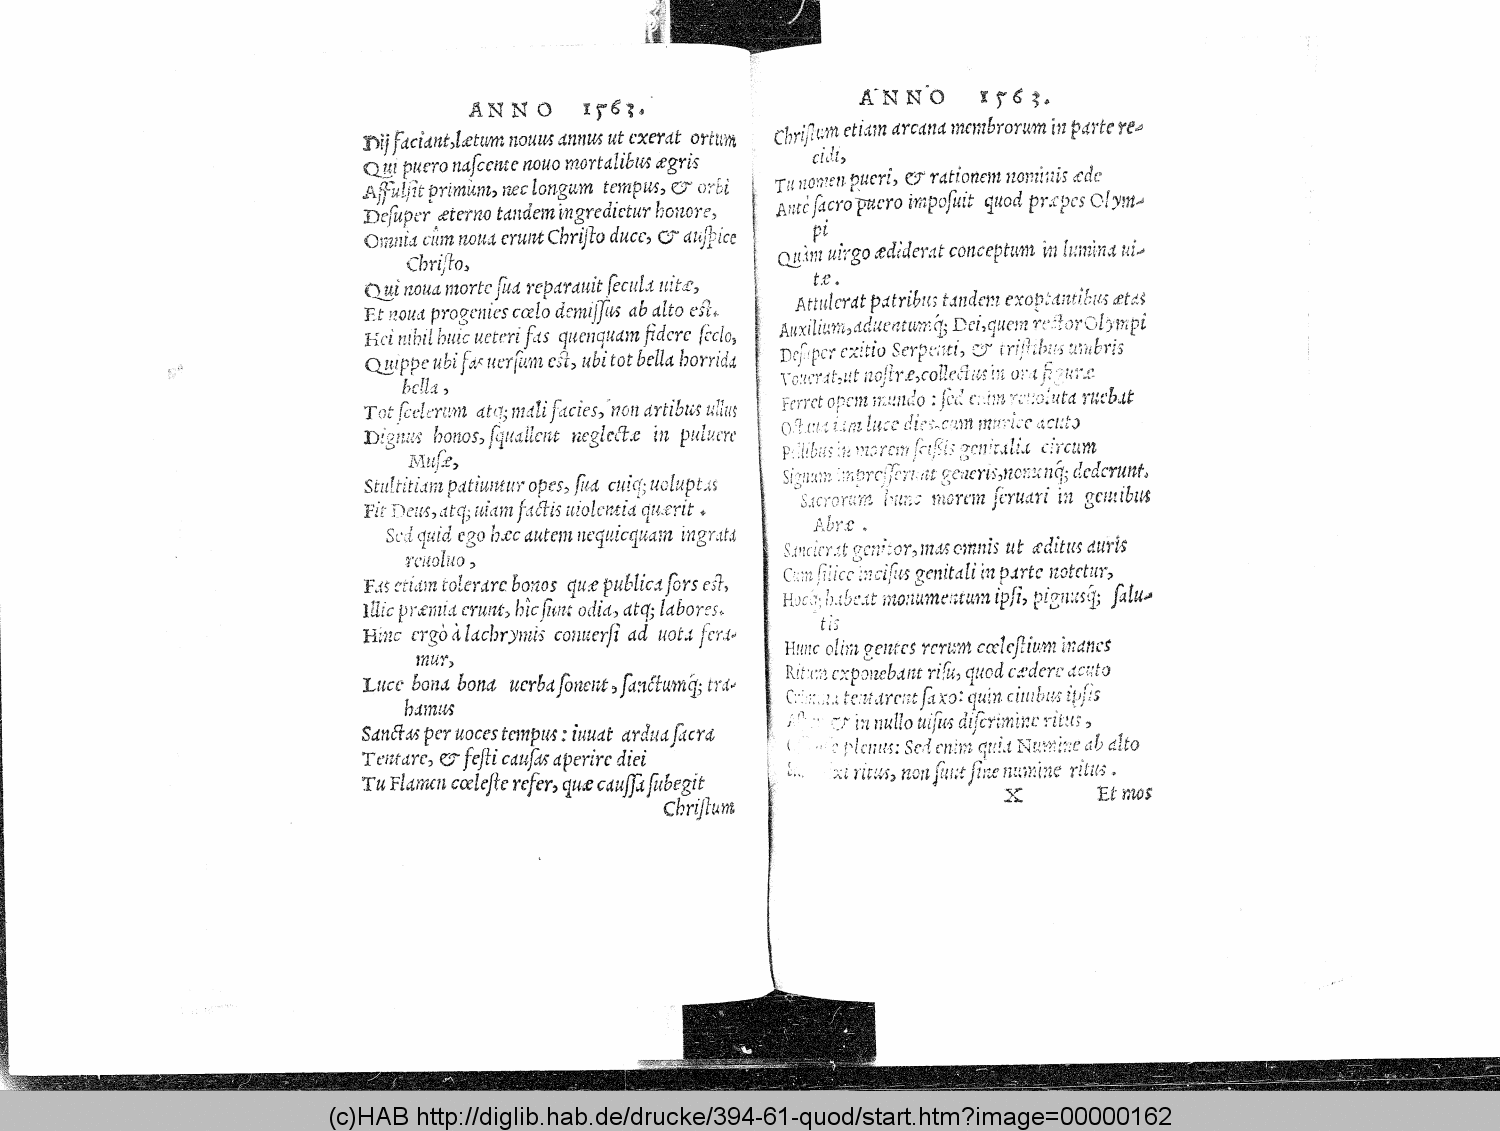 ANNO 1563.
Dij faciant, lætum nouus annus ut exerat ortum
Qui puero naſcente nouo mortalibus ægris
Affulſit primùm, nec longum tempus, & orbi
Deſuper æterno tandem ingredietur honore,
Omnia cûm noua erunt Chriſto duce, & auſpice
Chriſto,
Qui noua morte ſua reparauit ſecula uitæ,
Et noua progenies cœlo demiſſus ab alto eſt.
Hei nihil huic ueteri fas quenquam fidere ſeclo,
Quippe ubi fas uerſum eſt, ubi tot bella horrida
bella,
Tot ſcelerum atq; mali facies, non artibus ullus
Dignus honos, ſquallent neglectæ in puluere
Muſæ,
Stultitiam patiuntur opes, ſua cuiq; uoluptas
Fit Deus, atq; uiam factis uiolentia quærit.
Sed quid ego hæc autem nequicquam ingrata
reuoluo,
Fas etiam tolerare bonos quæ publica fors eſt,
Illic præmia erunt, hîc ſunt odia, atq; labores.
Hinc ergò à lachrymis conuerſi ad uota fera-
mur,
Luce bona bona uerba ſonent, ſanctumq́; tra-
hamus
Sanctas per uoces tempus: iuuat ardua ſacra
Tentare, & feſti cauſas aperire diei
Tu Flamen cœleſte refer, quæ cauſſa ſubegit
Chriſtum
ANNO 1563.
Chriſtum etiam arcana membrorum in parte re-
cidi,
Tu nomen pueri, & rationem nominis æde
Antè ſacro puero impoſuit quod præpes Olym-
pi
Quàm uirgo ædiderat conceptum in lumina ui-
tæ.
Attulerat patribus tandem exoptantibus ætas
Auxilium, aduentumq́; Dei, quem rector Olympi
Deſuper exitio Serpenti, & triſtibus umbris
Vouerat, ut noſtræ, collectus in ora figuræ
Ferret opem mundo: ſed enim reuoluta ruebat
luce dies, cum murice acuto
Pellibus in morem ſciſſis genitalia circum
Signum impreſſerunt generis, nomenq́; dederunt.
Sacrorum hunc morem ſeruari in gentibus
Abræ.
Sancierat genitor, mas omnis ut æditus auris
Cum ſilice inciſus genitali in parte notetur,
Hocq́; habeat monumentum ipſi, pignusq́; ſalu-
tis
Hunc olim gentes rerum cœleſtium inanes
Ritum exponebant riſu, quod cædere acuto
tentarent ſaxo: quin ciuibus ipſis
& in nullo uiſus diſcrimine ritus,
plenus: Sed enim quia Numine ab alto
ritus, non ſunt ſine numine ritus.
X Et mos
(c)HAB http://diglib.hab.de/drucke/394-61-quod/start.htm?image=00000162